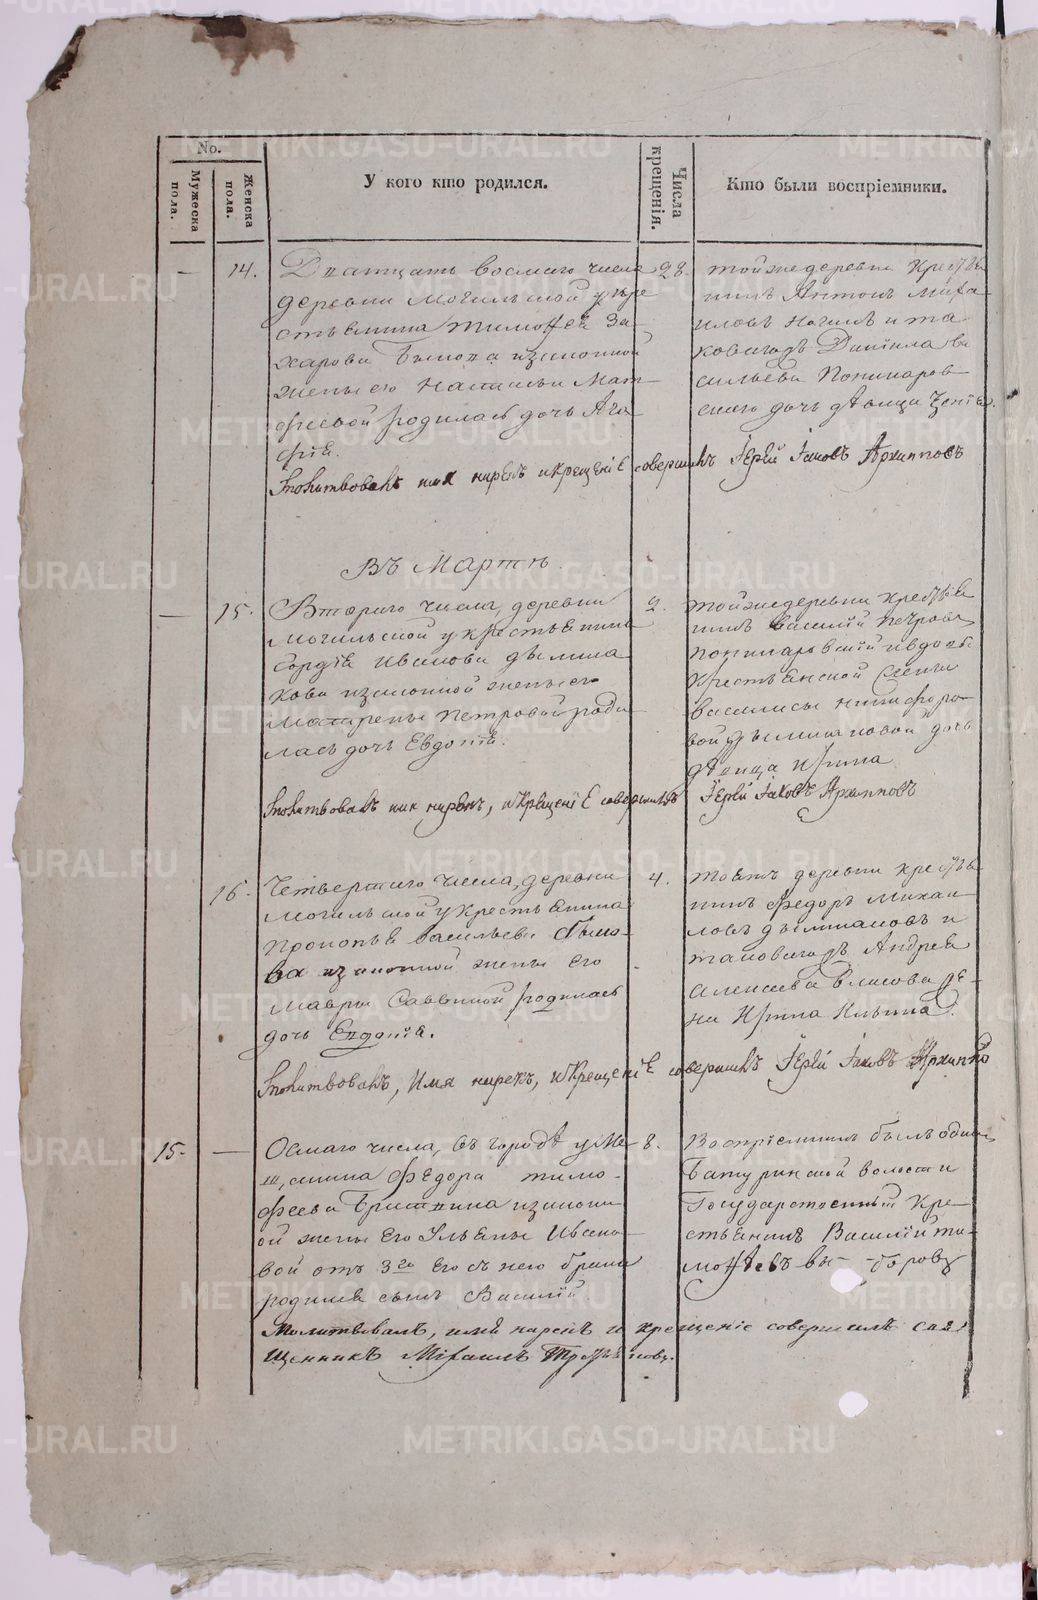 No.
Мужеска пола.
Женска пола.
У кого кто родился.
Числа крещенія.
Кто были воспріемники.
14.
Дватцать восмаго числа
деревни Могильской у кре
стьянина Тимофея За-
харова изаконной
жены его Настасьи Мат-
феевой родилась дочь Ага
фія.
28.
тойже деревни крестья
нинъ Антонъ Миха
иловъ и та
ковагожъ Даніила Ва
сильева Пономарев
скаго дочь дѣвица
Молитвовалъ имя нарекъ и крещеніе совершилъ Іерей Іаковъ Архипповъ
Въ Мартѣ
15.
Втораго числа, деревни
Могильской у крестьянина
Иванова
кова изаконной жены его
Матрены Петровой роди
лась дочь Евдокія.
2.
тойже деревни крестья
нинъ Василій Петровъ
крестьянской
Василисы Никифоро
вой дочь
дѣвица Ирина
Молитвовалъ имя нарекъ, и крещеніе совершилъ Іерей Іаковъ Архипповъ
16.
Четвертаго числа, деревни
Могильской у крестьянина
Прокопья Васильева
ва изаконной жены его
Мавры Саввиной родилась
дочь Евдокія.
4.
тоежъ деревни крестья
нинъ Федоръ Михаи
ловъ и
таковагожъ Андрея
Алексеева Власова же-
на Ирина Ильина
Молитвовалъ, имя нарекъ, и крещеніе совершилъ Іерей Іаковъ Архиппо
15.
Осмаго числа, въ городѣ у ме-
щанина Федора Тимо-
феева изаконн
ой жены его Ульяны Ивано-
вой отъ 3го его съ нею брака
родился сынъ Василій.
8.
Воспріемникъ былъ одинъ,
Батуринской волости
Государственный кре-
стьянинъ Василій Ти-
мофѣевъ Вы-боровъ
Молитвовалъ, имя нарекъ и крещеніе совершилъ свя
щенникъ Михаилъ
METRIKI.GASO-URAL.RU